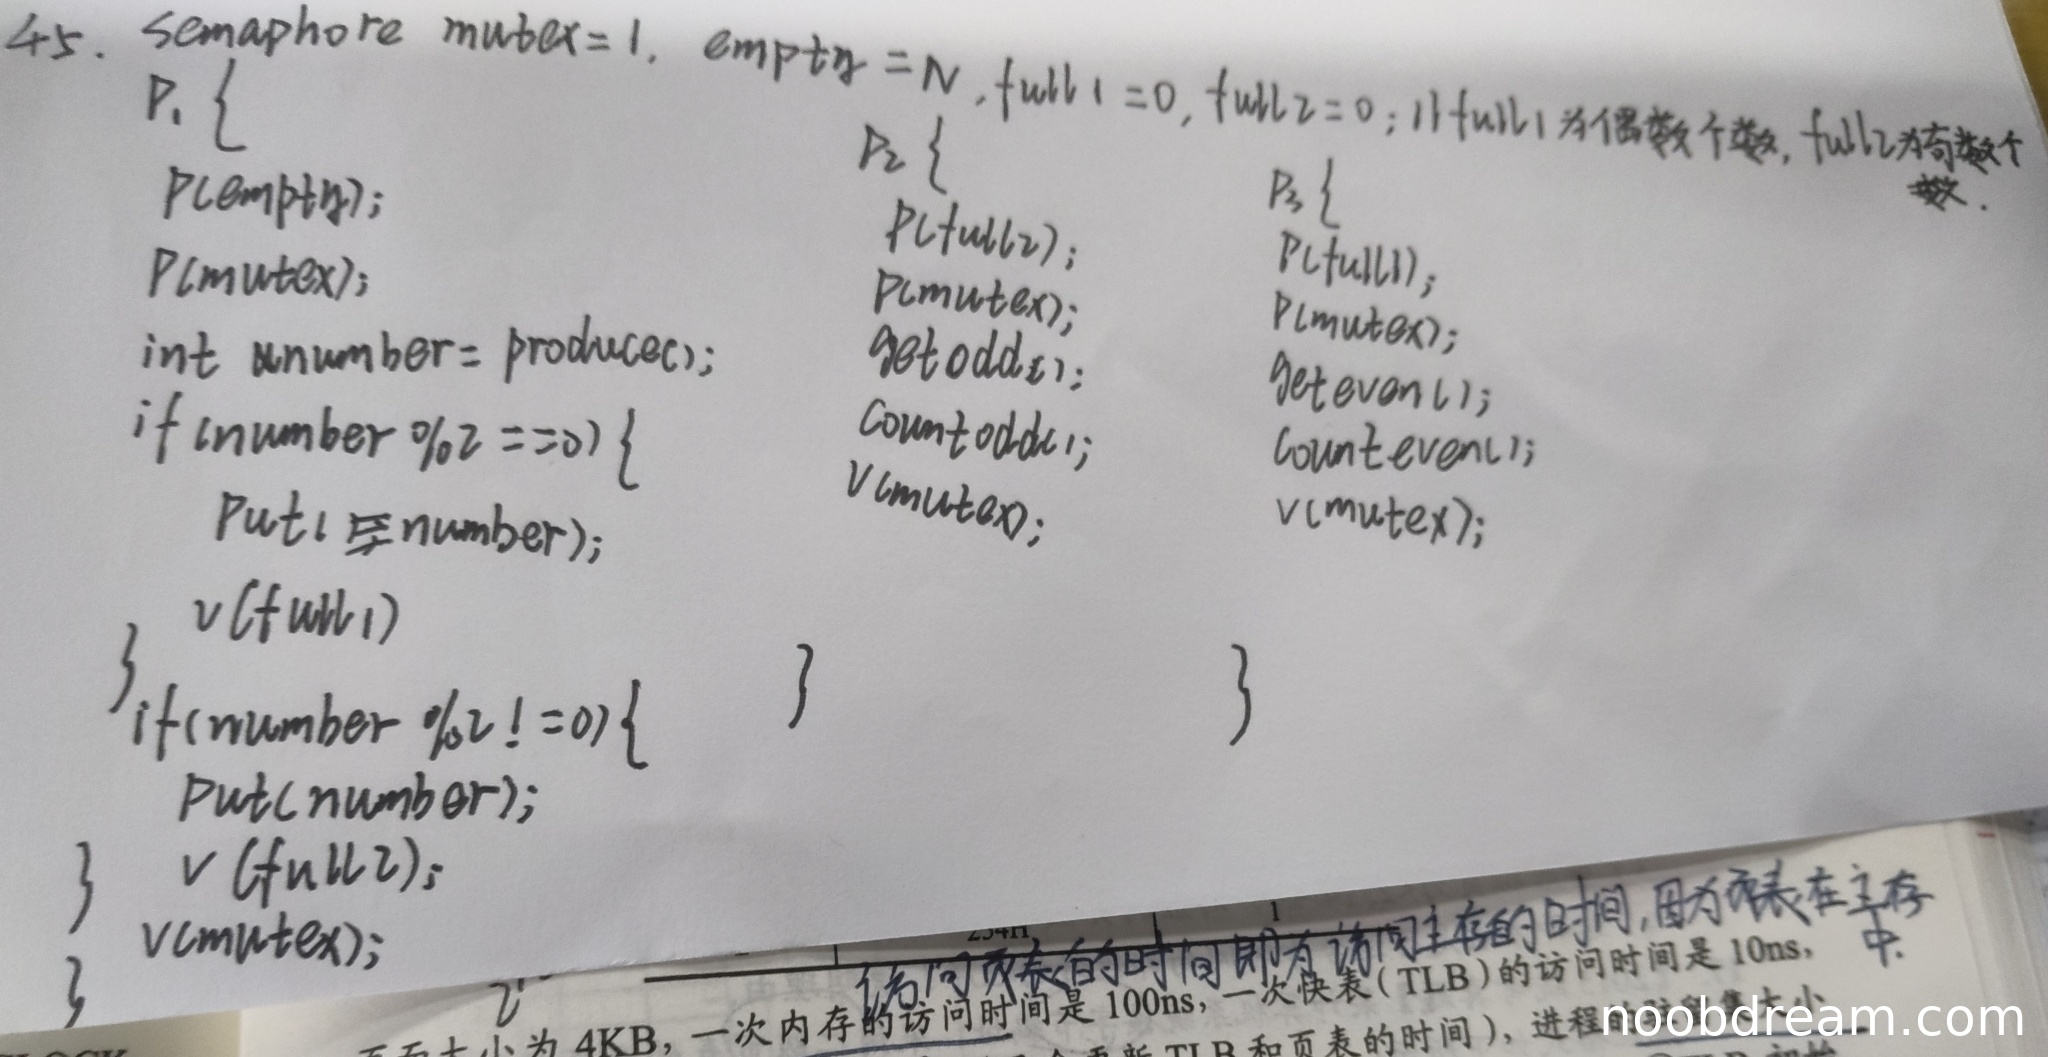 45. semaphore mutex=1, empty=N, full1=0, full2=0; //full1为偶数个数, full2为奇数个
数.
P1 {
P(empty);
P(mutex);
int number= produce();
if(number %2 ==0) {
Put(number);
V(full1)
}
if(number %2 != 0) {
Put(number);
V(full2);
}
V(mutex);
}
P2 {
P(full2);
P(mutex);
getodd();
countodd();
V(mutex);
}
P3 {
P(full1);
P(mutex);
geteven();
counteven();
V(mutex);
}
访问页表的时间即为访问主存的时间,因为页表在主存
中.
页面大小为 4KB, 一次内存的访问时间是 100ns, 一次快表(TLB)的访问时间是 10ns,
更新 TLB 和页表的时间), 进程的驻留集大小
noobdream.com